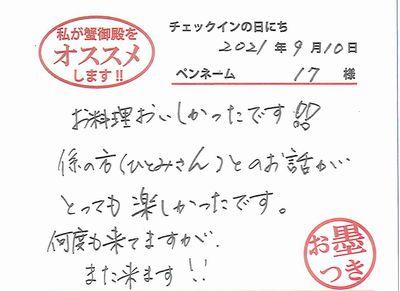 私が蟹御殿を
オススメ
します!!
チェックインの日にち
2021年9月10日
ペンネーム 17 様
お料理おいしかったです!!
係の方(ひとみさん)とのお話が
とっても楽しかったです。
何度も来てますが、
また来ます!!
お墨
つき